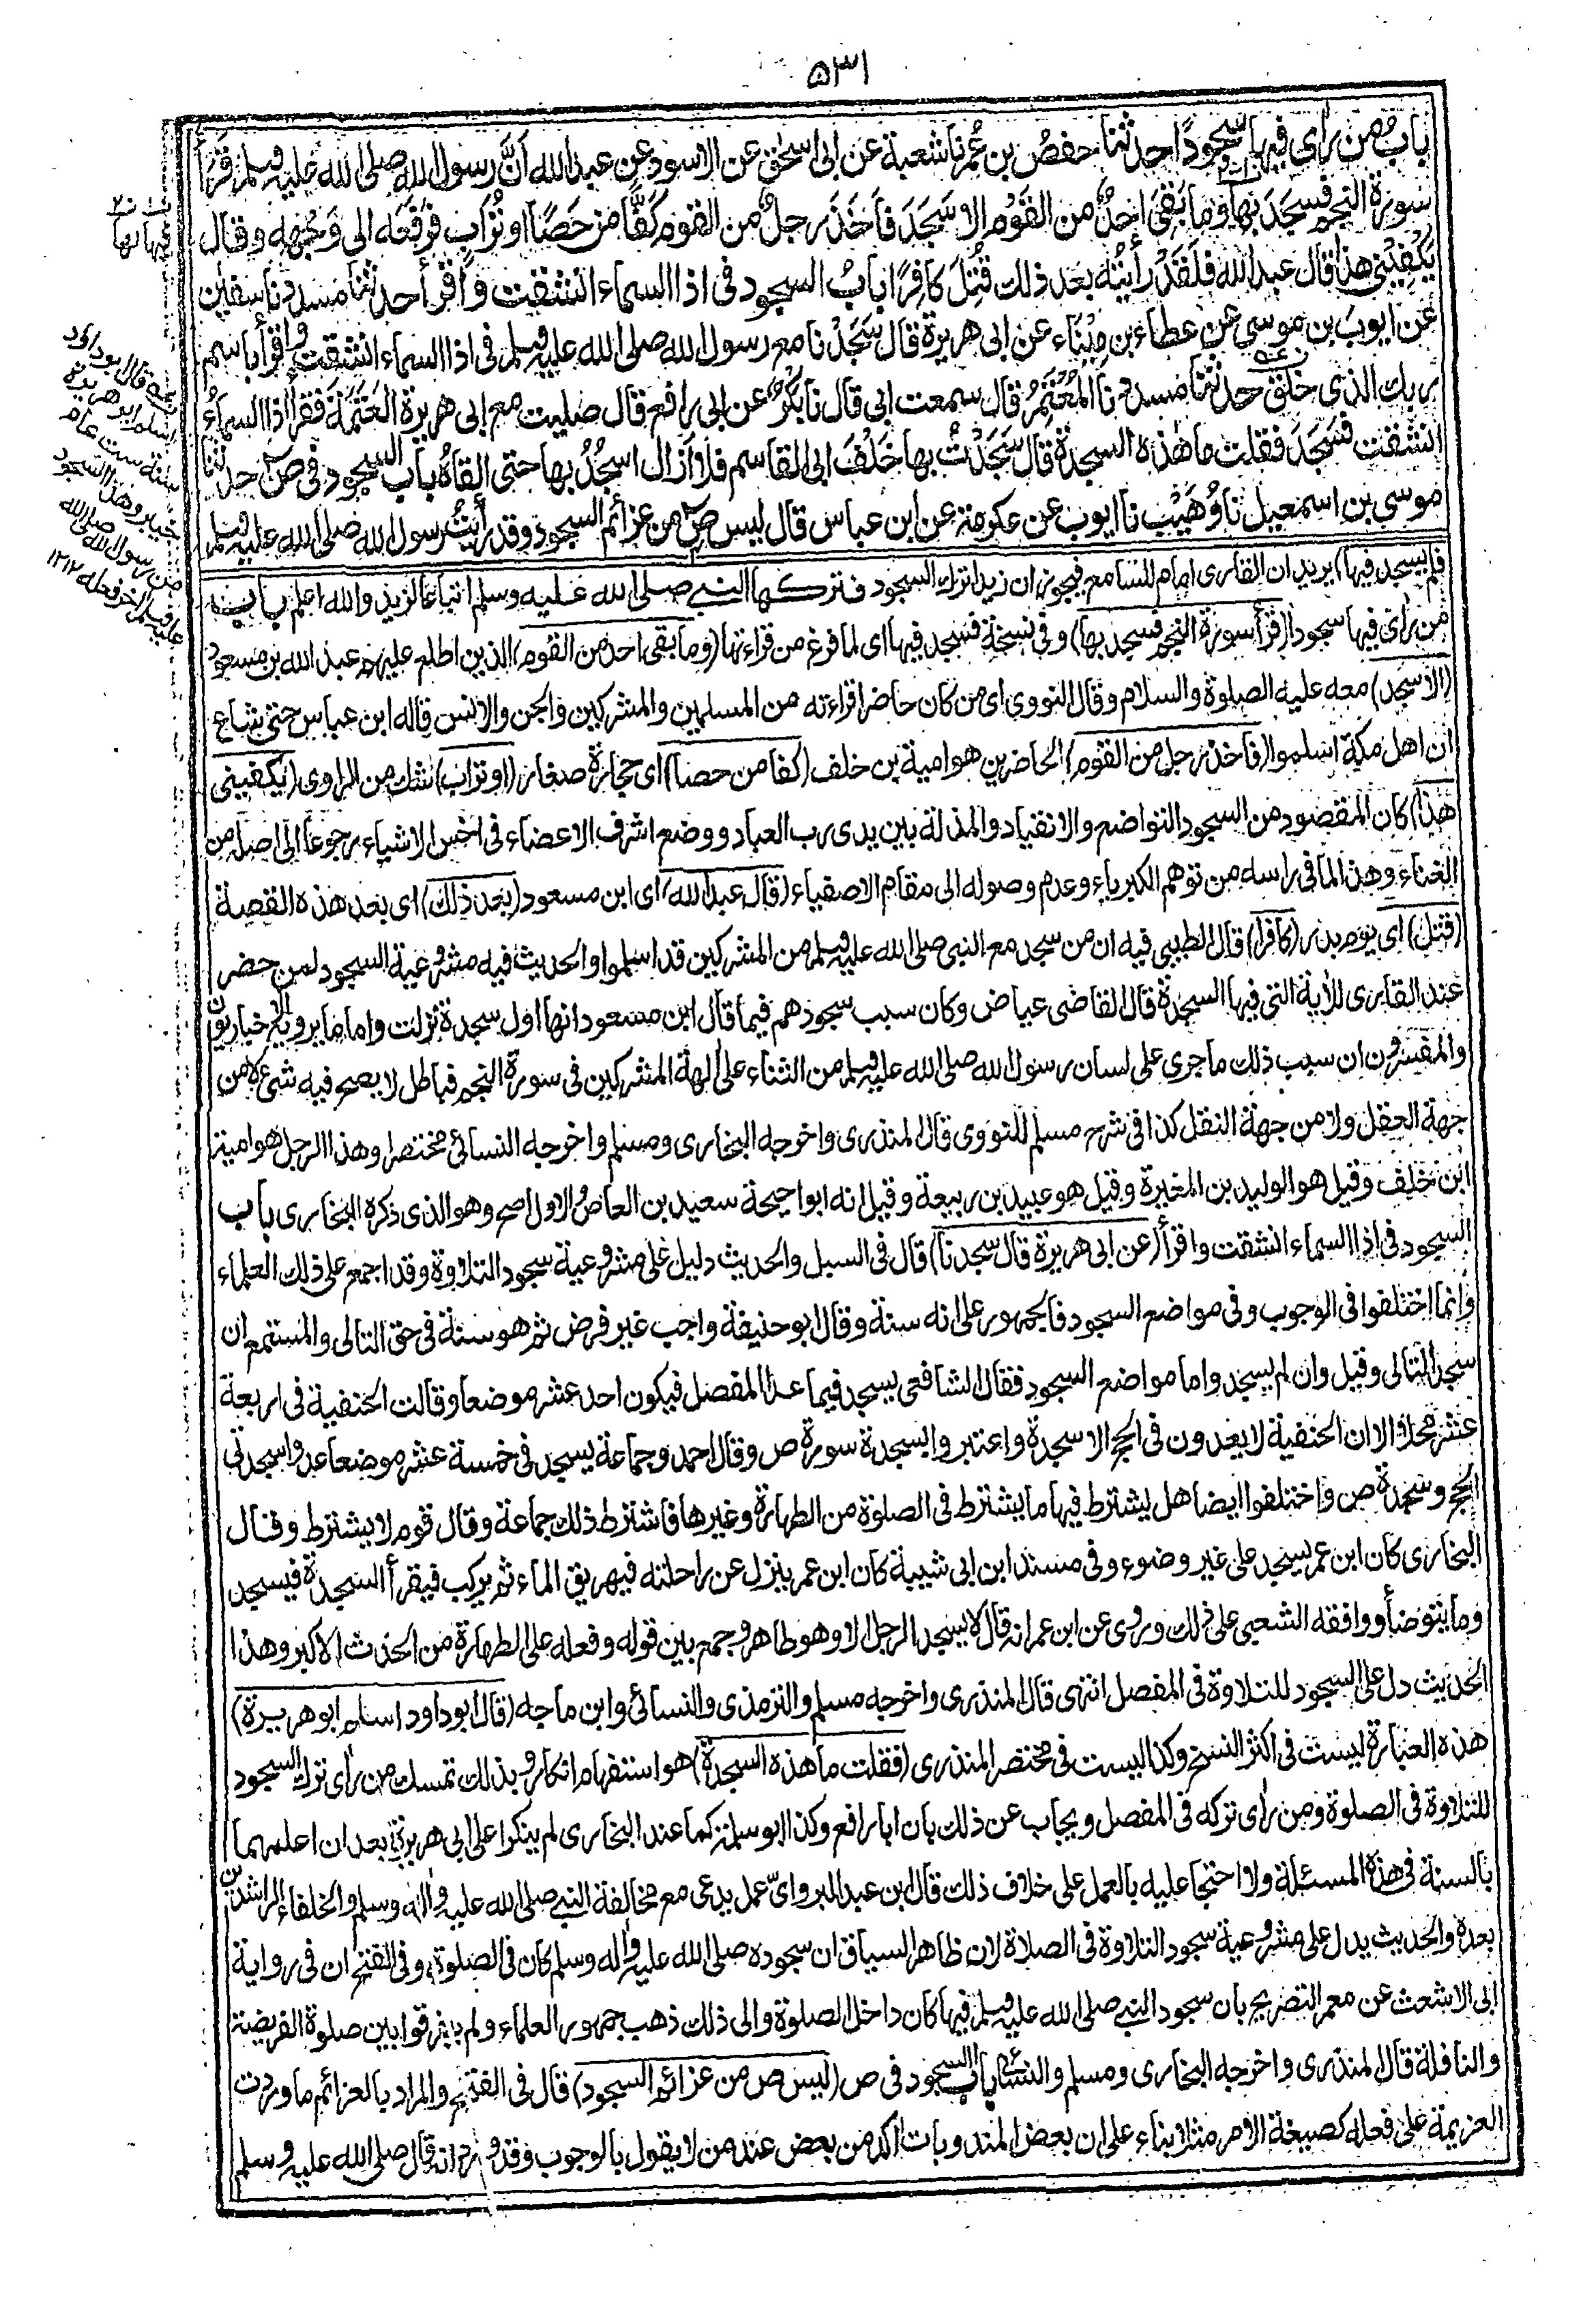 ٥٣١
باب من رأى فيها سجودا حدثنا حفص بن عمر نا شعبة عن ابى اسحق عن الاسود عن عبد الله أن رسول الله صلى الله عليه وسلم قرأ
سورة النجم فسجد بها وما بقى احد من القوم الا سجد فاخذ رجل من القوم كفا من حصا او تراب فرفعه الى وجهه وقال
يكفينى هذا قال عبد الله فلقد رأيته بعد ذلك قتل كافرا باب السجود فى اذا السماء انشقت واقرأ حدثنا مسدد نا سفين
عن ايوب بن موسى عن عطاء بن ميناء عن ابى هريرة قال سجدنا مع رسول الله صلى الله عليه وسلم فى اذا السماء انشقت واقرأ باسم
ربك الذى خلق حدثنا مسدد نا المعتمر قال سمعت ابى قال نا بكر عن ابى رافع قال صليت مع ابى هريرة العتمة فقرأ اذا السماء
انشقت فسجد فقلت ما هذه السجدة قال سجدت بها خلف ابى القاسم فلا أزال اسجد بها حتى القاه باب السجود فى ص حدثنا
موسى بن اسمعيل نا وهيب نا ايوب عن عكرمة عن ابن عباس قال ليس ص من عزائم السجود وقد رأيت رسول الله صلى الله عليه وسلم
فيها بها
قال ابو داود
اسلم ابو هريرة
سنة ست عام
خيبر وهذا السجود
من رسول الله صلى الله
عليه وسلم اخر فعله ١٢١٢
فلم يسجد فيها) يريد ان القارى امام للسامع فيجوز ان زيدا ترك السجود فتركها النبى صلى الله عليه وسلم اتباعا لزيد والله اعلم باب
من رأى فيها سجودا (قرأ سورة النجم فسجد بها) وفى نسخة فسجد فيها اى لما فرغ من قراءتها (وما بقى احد من القوم) الذين اطلع عليهم عبد الله بن مسعود
(الا سجد) معه عليه الصلوة والسلام وقال النووى اى من كان حاضرا قراءته من المسلمين والمشركين والجن والانس قاله ابن عباس حتى شاع
ان اهل مكة اسلموا (فاخذ رجل من القوم) الحاضرين هو امية بن خلف (كفا من حصا) اى حجارة صغار (او تراب) شك من الراوى (يكفينى
هذا) كان المقصود من السجود التواضع والانقياد والمذلة بين يدى رب العباد ووضع اشرف الاعضاء فى اخس الاشياء رجوعا الى اصله من
الغناء وهذا لما فى راسه من توهم الكبرياء وعدم وصوله الى مقام الاصفياء (قال عبد الله) اى ابن مسعود (بعد ذلك) اى بعد هذه القصة
(قتل) اى يوم بدر (كافرا) قال الطيبى فيه ان من سجد مع النبى صلى الله عليه وسلم من المشركين قد اسلموا والحديث فيه مشروعية السجود لمن حضر
عند القارى للآية التى فيها السجدة قال القاضى عياض وكان سبب سجودهم فيما قال ابن مسعود انها اول سجدة نزلت واما ما يرويه الاخباريون
والمفسرون ان سبب ذلك ما جرى على لسان رسول الله صلى الله عليه وسلم من الثناء على الهة المشركين فى سورة النجم فباطل لا يصح فيه شئ لا من
جهة العقل ولا من جهة النقل كذا فى شرح مسلم للنووى قال المنذرى واخرجه البخارى ومسلم واخرجه النسائى مختصرا وهذا الرجل هو امية
ابن خلف وقيل هو الوليد بن المغيرة وقيل هو عبيد بن ربيعة وقيل انه ابو احيحة سعيد بن العاص والاول اصح وهو الذى ذكره البخارى باب
السجود فى اذا السماء انشقت واقرأ (عن ابى هريرة قال سجدنا) قال فى السبل والحديث دليل على مشروعية سجود التلاوة وقد اجمع على ذلك العلماء
وانما اختلفوا فى الوجوب وفى مواضع السجود فالجمهور على انه سنة وقال ابو حنيفة واجب غير فرض ثم هو سنة فى حق التالى والمستمع ان
سجد التالى وقيل وان لم يسجد واما مواضع السجود فقال الشافعى يسجد فيما عدا المفصل فيكون احد عشر موضعا وقالت الحنفية فى اربعة
عشر محلا الا ان الحنفية لا يعدون فى الحج الا سجدة واعتبروا بسجدة سورة ص وقال احمد وجماعة يسجد فى خمسة عشر موضعا عدوا سجدتى
الحج وسجدة ص واختلفوا ايضا هل يشترط فيها ما يشترط فى الصلوة من الطهارة وغيرها فاشترط ذلك جماعة وقال قوم لا يشترط وقال
البخارى كان ابن عمر يسجد على غير وضوء وفى مسند ابن ابى شيبة كان ابن عمر ينزل عن راحلته فيهريق الماء ثم يركب فيقرأ السجدة فيسجد
وما يتوضأ ووافقه الشعبى على ذلك وروى عن ابن عمر انه قال لا يسجد الرجل الا وهو طاهر وجمع بين قوله وفعله على الطهارة من الحدث الاكبر وهذا
الحديث دل على السجود للتلاوة فى المفصل انتهى قال المنذرى واخرجه مسلم والترمذى والنسائى وابن ماجه (قال ابو داود اسلم ابو هريرة)
هذه العبارة ليست فى اكثر النسخ وكذا ليست فى مختصر المنذرى (فقلت ما هذه السجدة) هو استفهام انكار وبذلك تمسك من رأى ترك السجود
للتلاوة فى الصلوة ومن رأى تركه فى المفصل ويجاب عن ذلك بان ابا رافع وكذا ابو سلمة كما عند البخارى لم ينكرا على ابى هريرة بعد ان اعلمهما
بالسنة فى هذه المسئلة ولا احتجا عليه بالعمل على خلاف ذلك قال ابن عبد البر واى عمل يدعى مع مخالفة النبى صلى الله عليه واله وسلم والخلفاء الراشدين
بعده والحديث يدل على مشروعية سجود التلاوة فى الصلاة لان ظاهر السياق ان سجوده صلى الله عليه واله وسلم كان فى الصلوة وفى الفتح ان فى رواية
ابى الاشعث عن معمر التصريح بان سجود النبى صلى الله عليه وسلم فيها كان داخل الصلوة والى ذلك ذهب جمهور العلماء ولم يفرقوا بين صلوة الفريضة
والنافلة قال المنذرى واخرجه البخارى ومسلم والنسائى باب السجود فى ص (ليس ص من عزائم السجود) قال فى الفتح والمراد بالعزائم ما وردت
العزيمة على فعله كصيغة الامر مثلا بناء على ان بعض المندوبات اكد من بعض عند من لا يقول بالوجوب وقد ورد انه قال صلى الله عليه وسلم